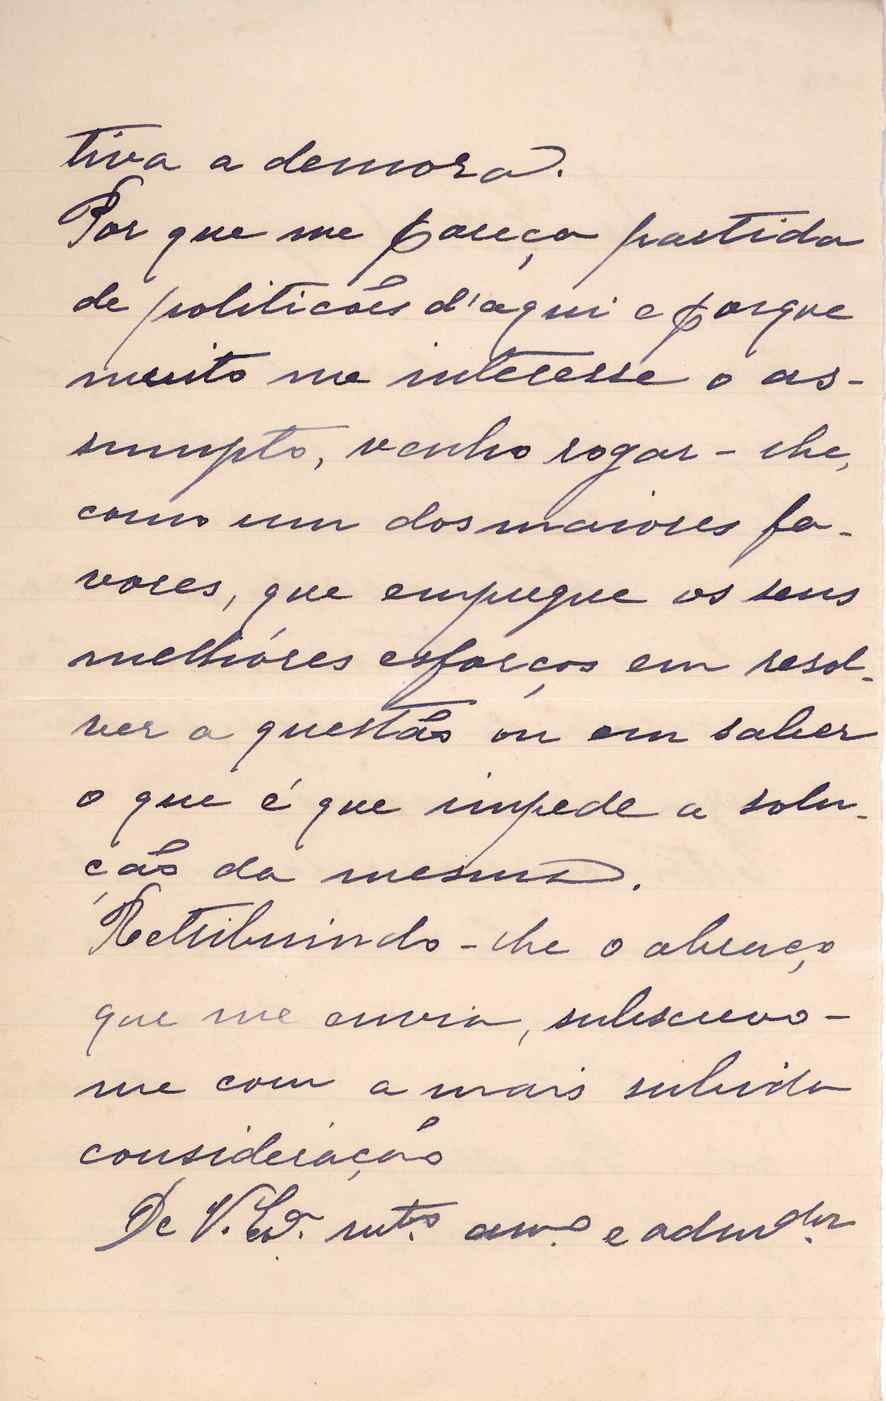 tiva a demora.
Por que me pareça partida
de politicões d'aqui e porque
muito me interesse o as-
sumpto, venho rogar-lhe,
como um dos maiores fa-
vores, que empregue os seus
melhóres esforços em resol-
ver a questão ou em saber
o que é que impede a solu-
ção da mesma.
Retribuindo-lhe o abraço
que me envia, subscrevo-
me com a mais subida
consideração
De V. Exª. mtº. amº. e admdor.